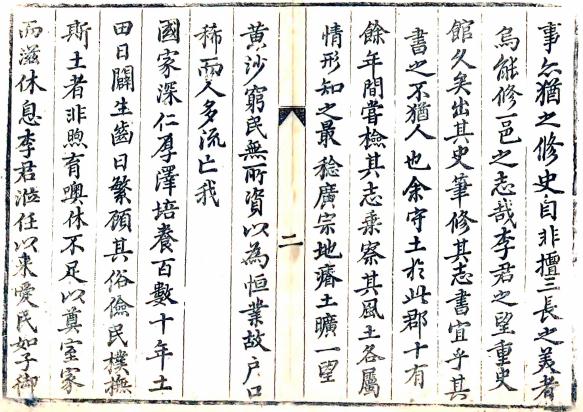 事尒猶之修史自非擅三長之美者
烏能修一邑之志哉李君之望重史
館久矣出其史筆修其志書宜乎其
書之不猶人也余守土於此郡十有
餘年間嘗檢其志乘察其風土各屬
情形知之最稔廣宗地瘠土曠一望
二
黄沙窮民無所資以為恒業故户口
稀而人多流亡我
國家深仁厚澤培養百數十年土
田日闢生齒日繁願其俗儉民樸撫
斯土者非煦育噢休不足以奠室家
而滋休息李君涖任以来愛民如子御